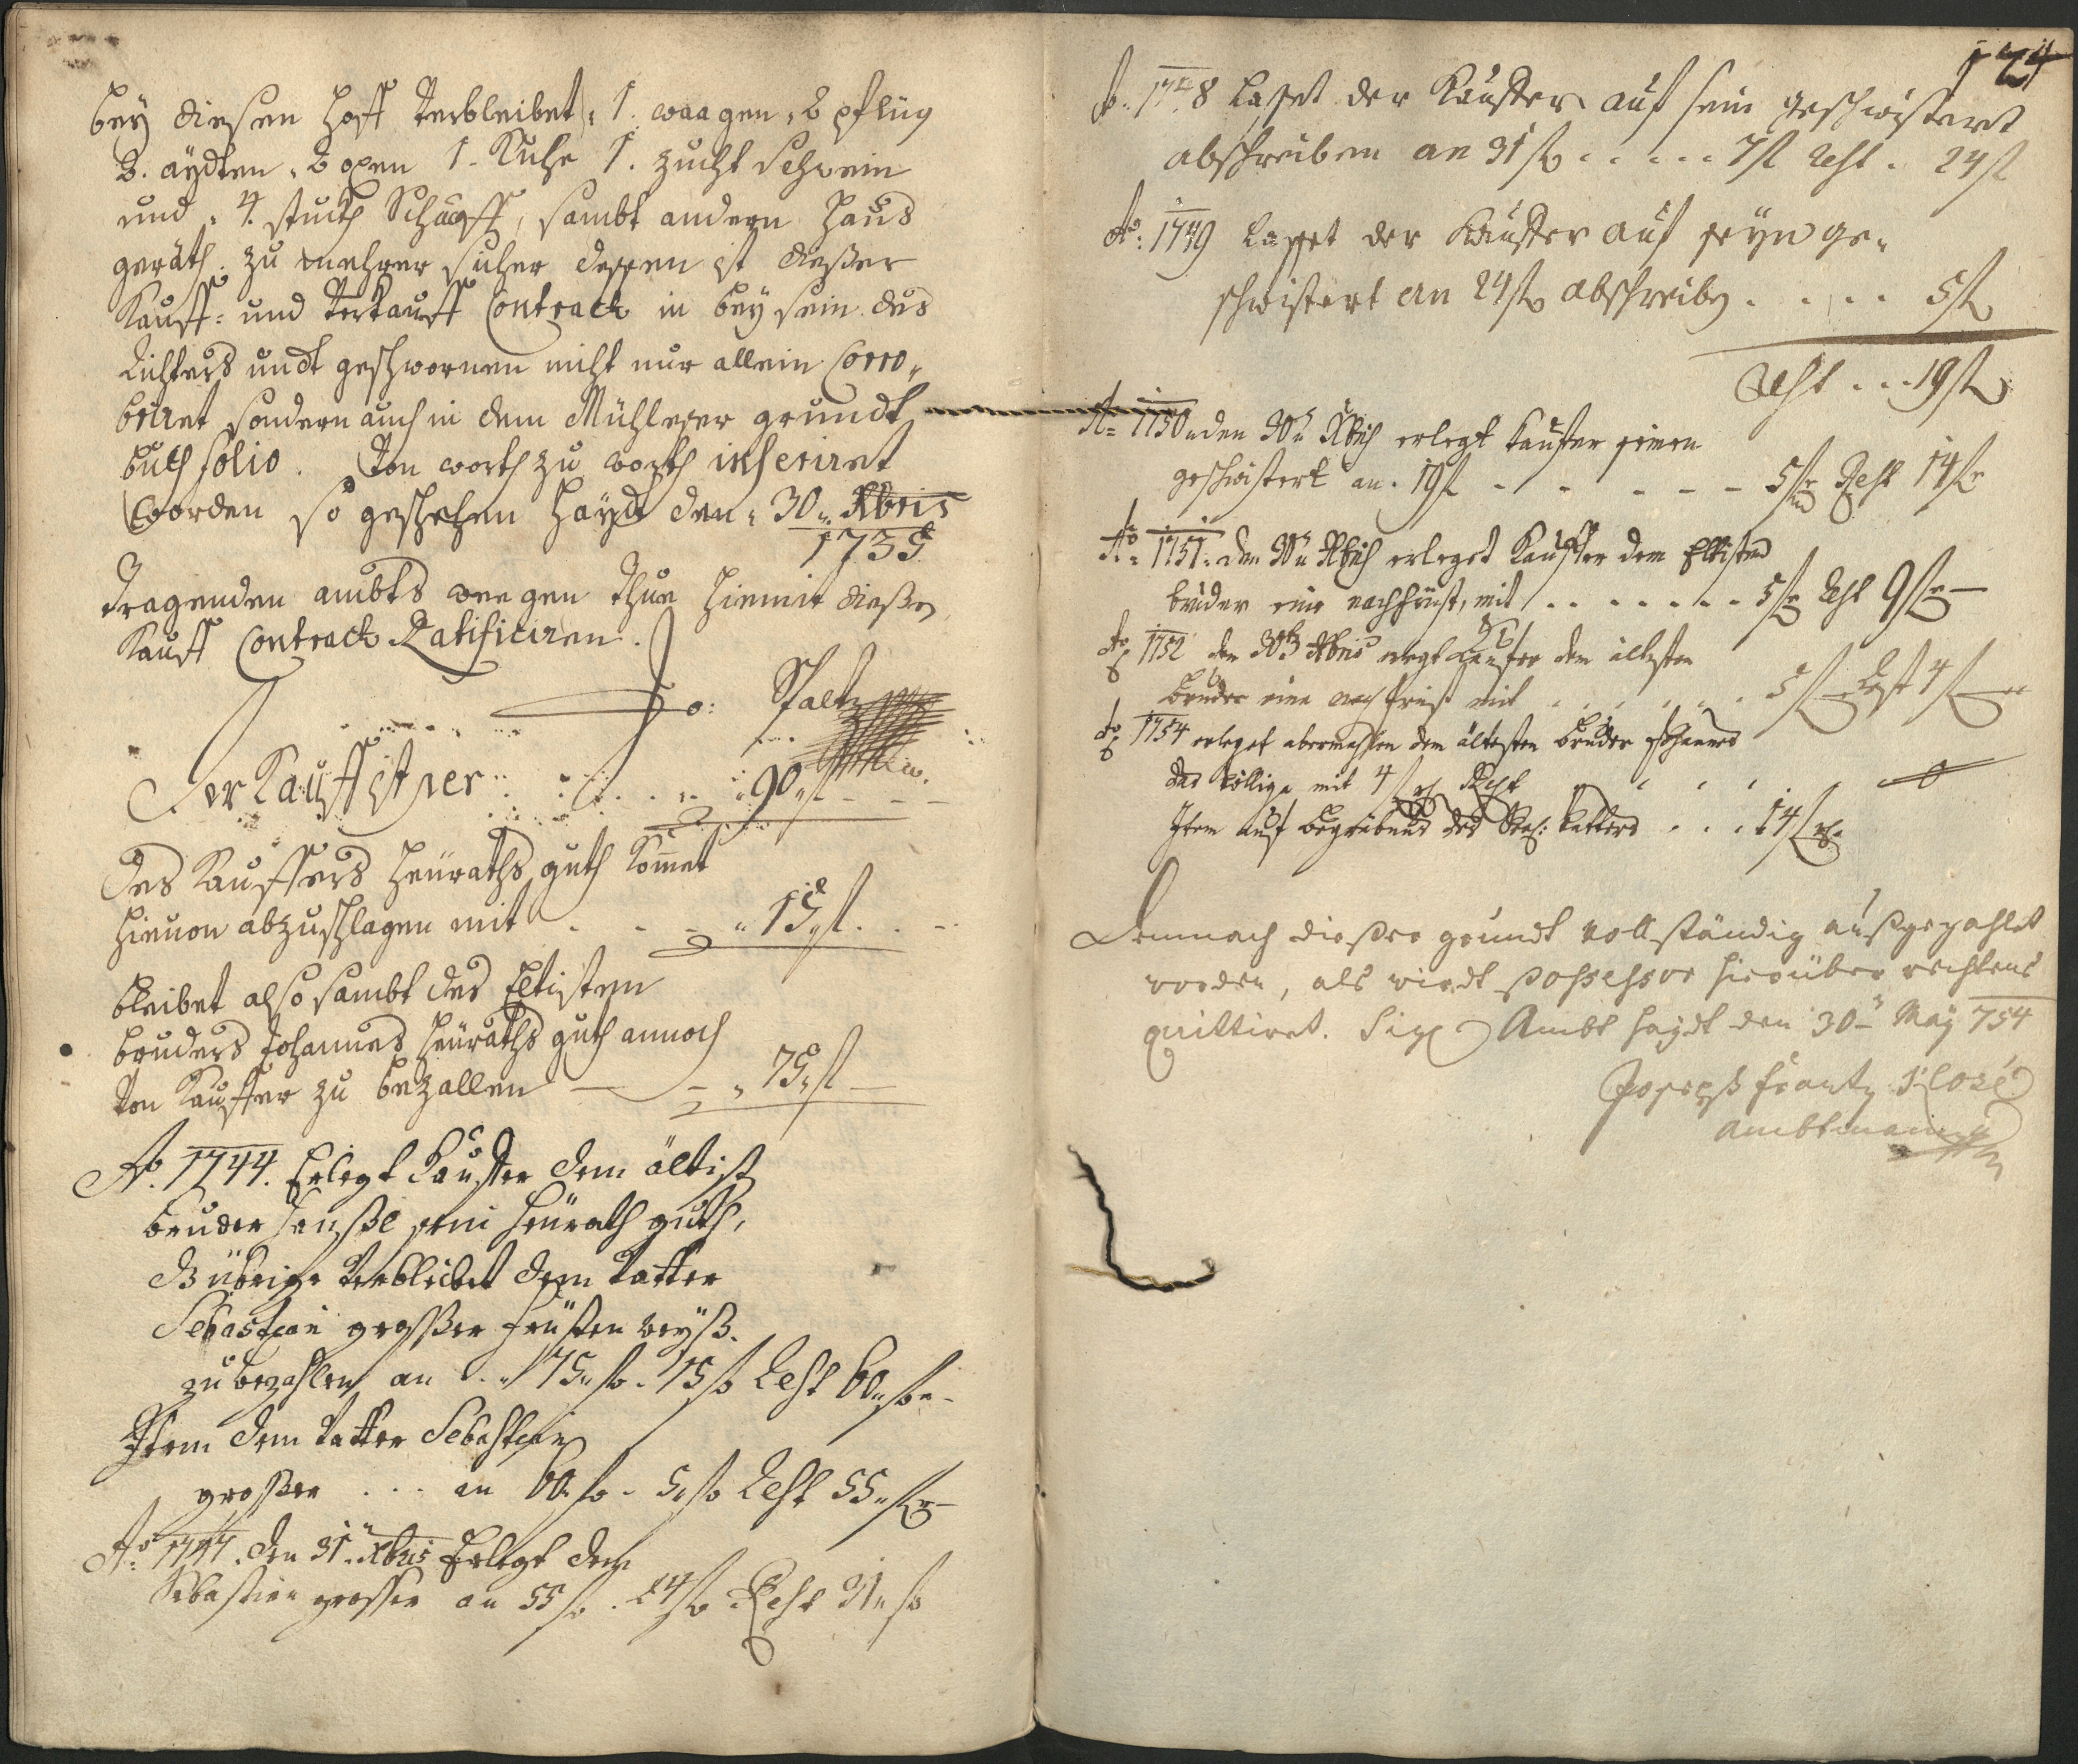 bey diesen Hoff Verbleibet, 1. waagen, 2 pflüg
2. äydten, 2 oxen 1. Kuhe 1. zucht Schwein
und 4. stuckh Schaaff, sambt andern Haus
geräth. zu mehrer sicher dessen ist dießer
Kauff- und Verkauff Contract in beysein des
Richters undt geschwornen nicht nur allein Corro-
boriret sondern auch in dem Mühleser grundt
buch folio. Von worth zu worth inseriret
worden so geschehen Hayd den 30 Xbris
1735
Tragenden ambts weegen thue hiemit dießen
Kauff Contract Ratificiren.
Der Kauff ist per 90 fl
Des Kauffers Heüraths guth Kommet
hieuon abzuschlagen mit 15 fl
bleibet also sambt des Eltisten
bruders Johannes Heüraths guth annoch
Von Kauffer zu bezallen 75 fl
Ao. 1744. Erlegt Kauffer dem ältist
bruder sein Heürath guth,
übrige Verbleibet dem Vatter
Sebastian großer früsten weyß.
zu bezahlen an 75 fl. 15 fl Rest 60 fl
Item dem Vatter Sebastian
großer ... an 60 fl. 5 fl Rest 55 fl
Ao: 1747. den 31 Xbris Erlegt dem
Sebastian grosser an 55 fl. 24 fl Rest 31 fl
124
Ao. 1748 Lasset der Kauffer auf sein geschwistert
abschreiben an 31 fl ..... 7 fl Rest. 24 fl
Ao: 1749 Lasset der Kauffer auf seyn ge-
schwistert an 24 fl abschreiben .... 5 fl
Rest ... 19 fl
Ao 1750 den 30 Xbris erlegt Kauffer seinen
geschwistert an. 19 fl - - - - - 5 fl Rest 14 fl
Ao. 1751. den 30 Xbris erleget Kauffer dem Eltisten
bruder eine nachfrüst, mit ....... 5 fl Rest 9 fl
Ao 1752 den 30 Xbris erlegt Kauffer dem ältesten
Bruder eine nachfrist mit ...... 5 fl Rest 4 fl
Ao 1754 erleget abermahlen dem ältesten bruder Johannes
das völlige mit 4 fl Rest 0
Item auf begräbnus des Vatters ... 14 fl
Demnach dießer grundt vollständig außgezahlet
worden, als wirdt possessor hierüber rechtens
quittiret. Sig. Ambt Haydt den 30 May 754
Joseph Frantz Klose
Ambtmann